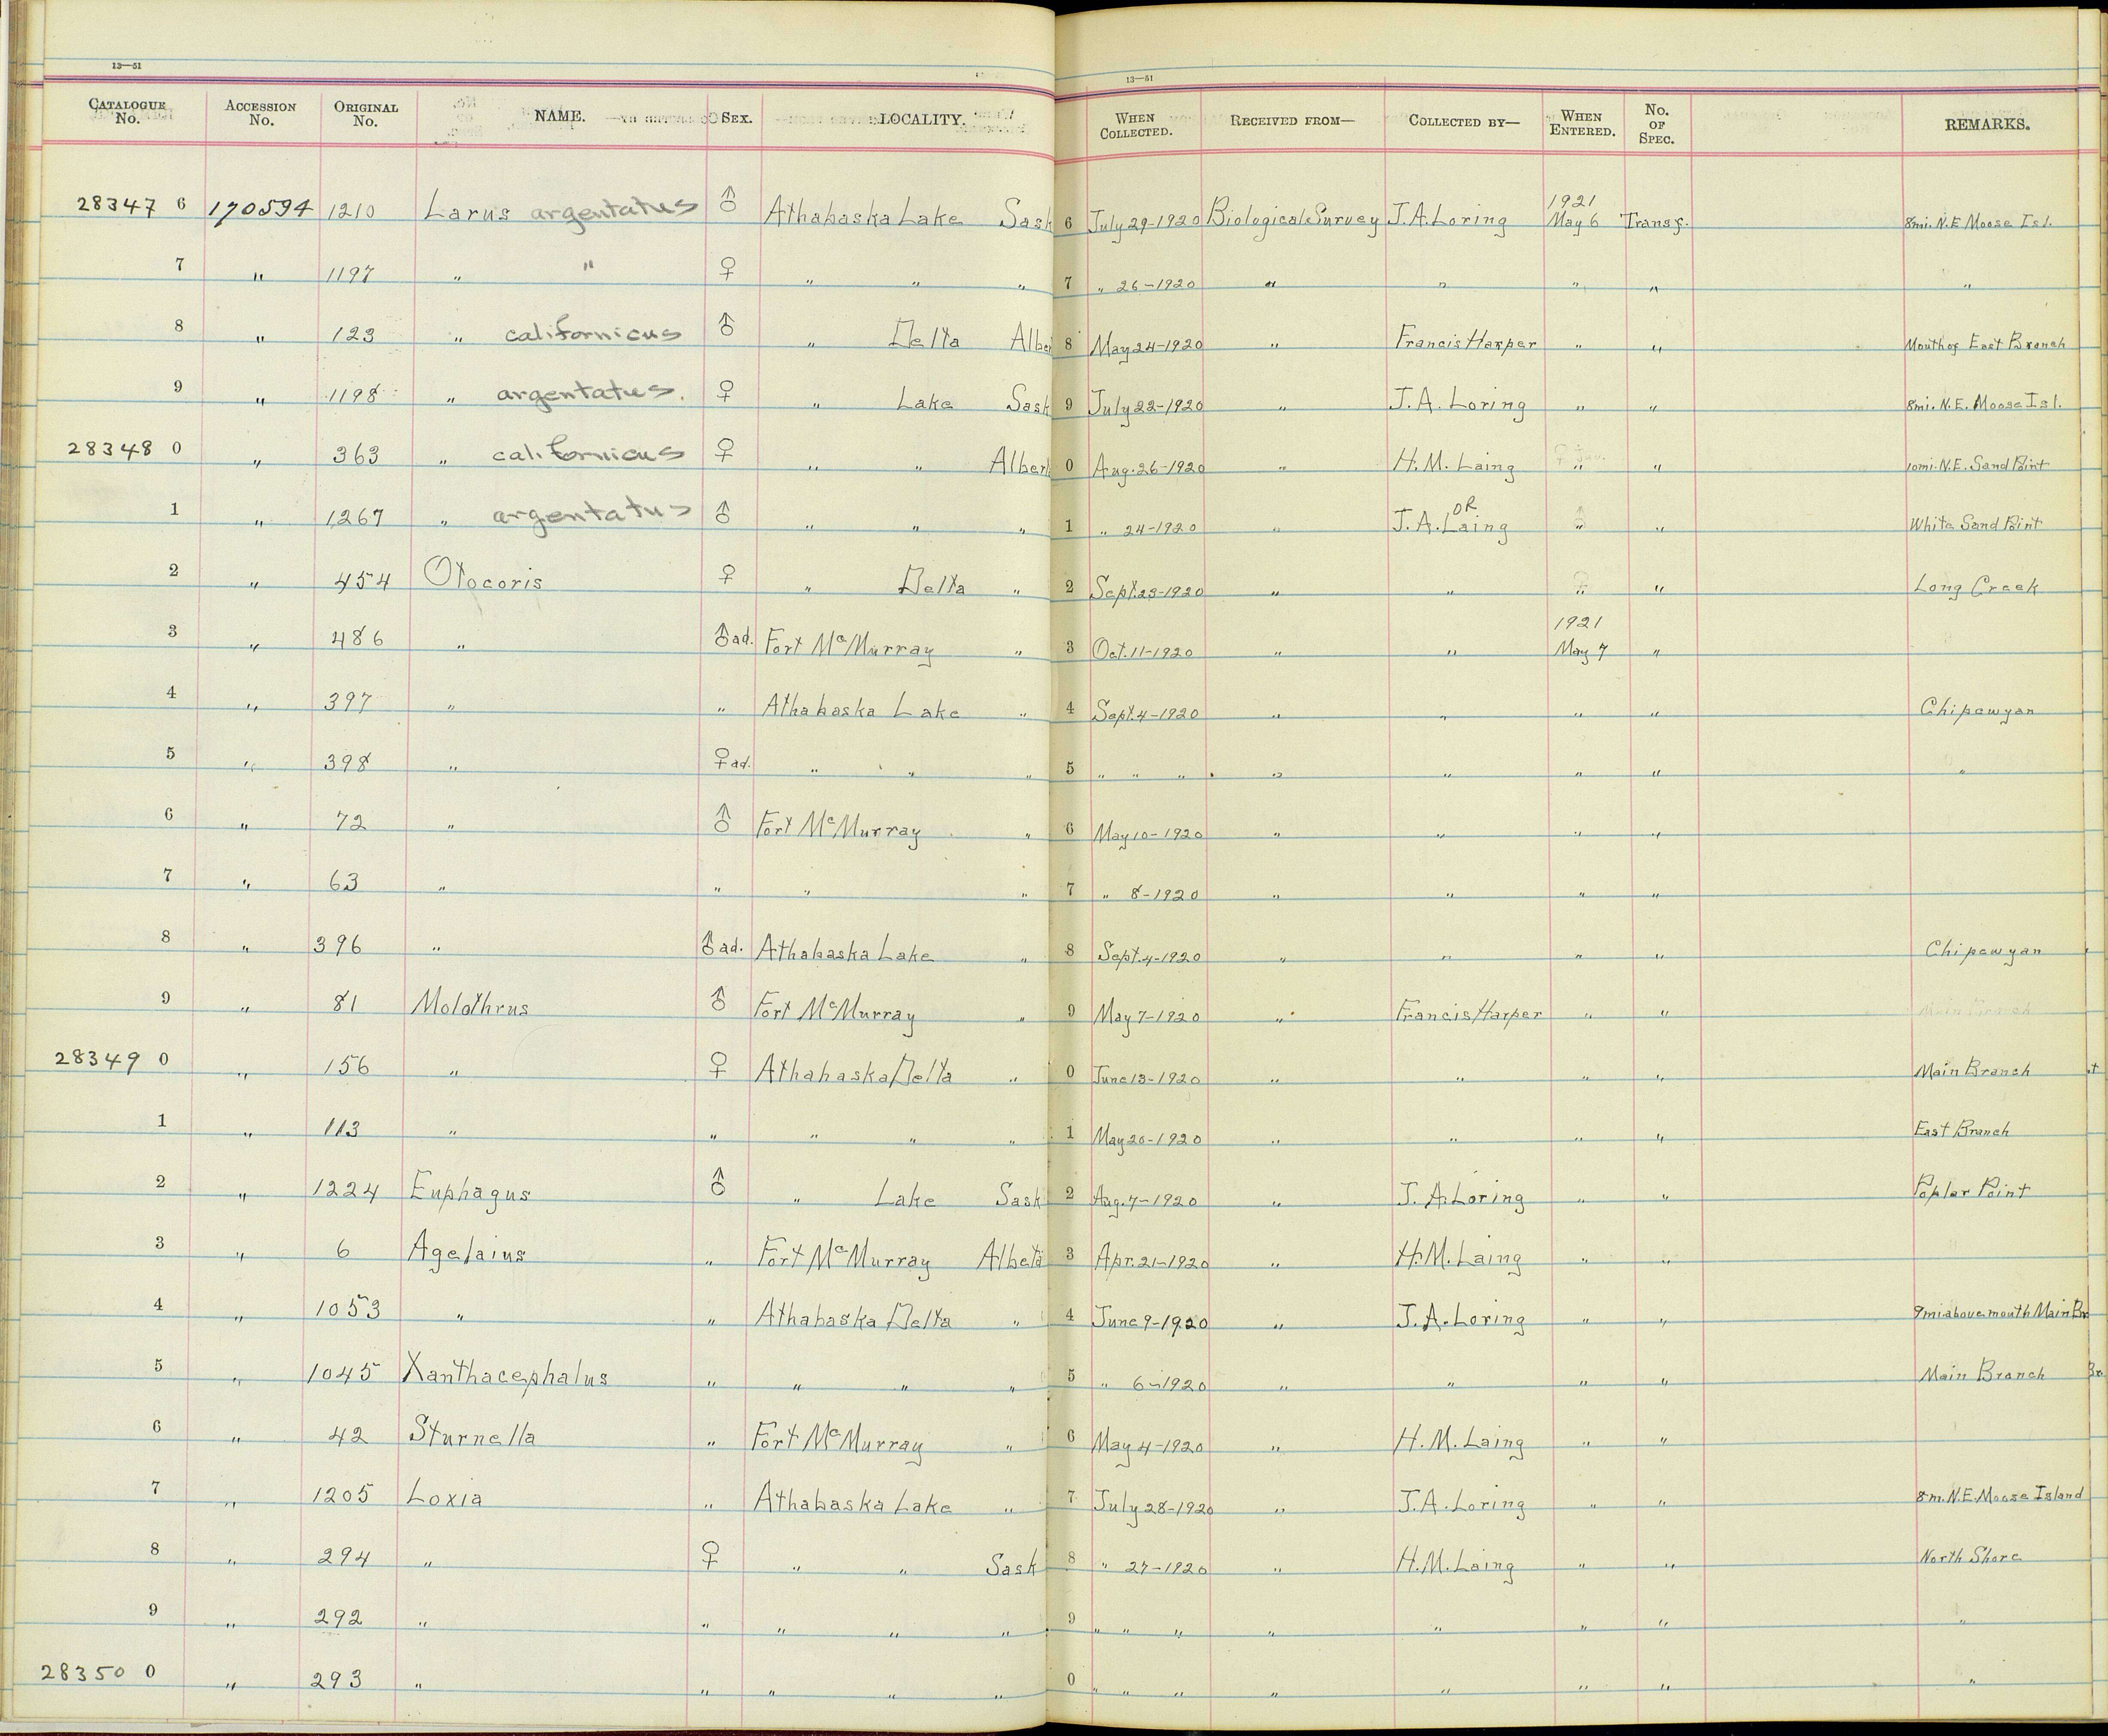 13—51
13—51
CATALOGUE No. ACCESSION No. ORIGINAL No. NAME. SEX. LOCALITY. WHEN COLLECTED. RECEIVED FROM— COLLECTED BY— WHEN ENTERED. No. OF SPEC. REMARKS.
28347 6 170594 1210 Larus argentatus ♂ Athabaska Lake Sask 6 July 29-1920 Biological Survey J.A. Loring 1921 May 6 Transf. 8mi. N.E Moose Isl.
7 " 1197 " " ♀ " " " 7 " 26-1920 " " " " "
8 " 123 " californicus ♂ " Delta Alber 8 May 24-1920 " Francis Harper " " Mouth of East Branch
9 " 1198 " argentatus. ♀ " Lake Sask 9 July 22-1920 " J.A. Loring " " 8mi. N.E. Moose Isl.
28348 0 " 363 " californicus ♀ " " Albert 0 Aug. 26-1920 " H.M. Laing " " 10mi. N.E. Sand Point
1 " 1267 " argentatus ♂ " " " 1 " 24-1920 " J.A. Laing OR " " White Sand Point
2 " 454 Otocoris ♀ " Delta " 2 Sept. 23-1920 " " " " Long Creek
3 " 486 " ♂ ad. Fort McMurray " 3 Oct. 11-1920 " " 1921 May 7 "
4 " 397 " " Athabaska Lake " 4 Sept. 4-1920 " " " " Chipewyan
5 " 398 " ♀ ad. " " " 5 " " " " " " " "
6 " 72 " ♂ Fort McMurray " 6 May 10-1920 " " " "
7 " 63 " " " " 7 " 8-1920 " " " "
8 " 396 " ♂ ad. Athabaska Lake " 8 Sept. 4-1920 " " " " Chipewyan
9 " 81 Molothrus ♂ Fort McMurray " 9 May 7-1920 " Francis Harper " " Main Branch
28349 0 " 156 " ♀ Athabaska Delta " 0 June 13-1920 " " " " Main Branch
1 " 113 " " " " " 1 May 20-1920 " " " " East Branch
2 " 1224 Euphagus ♂ " Lake Sask 2 Aug. 7-1920 " J.A. Loring " " Poplar Point
3 " 6 Agelaius " Fort McMurray Alberta 3 Apr. 21-1920 " H.M. Laing " "
4 " 1053 " " Athabaska Delta " 4 June 9-1920 " J.A. Loring " " 9mi above mouth Main Br
5 " 1045 Xanthacephalus " " " " 5 " 6-1920 " " " " Main Branch
6 " 42 Sturnella " Fort McMurray " 6 May 4-1920 " H.M. Laing " "
7 " 1205 Loxia " Athabaska Lake " 7 July 28-1920 " J.A. Loring " " 8m. N.E. Moose Island
8 " 294 " ♀ " " Sask 8 " 27-1920 " H.M. Laing " " North Shore
9 " 292 " " " " " 9 " " " " " " " "
28350 0 " 293 " " " " " 0 " " " " " " " "